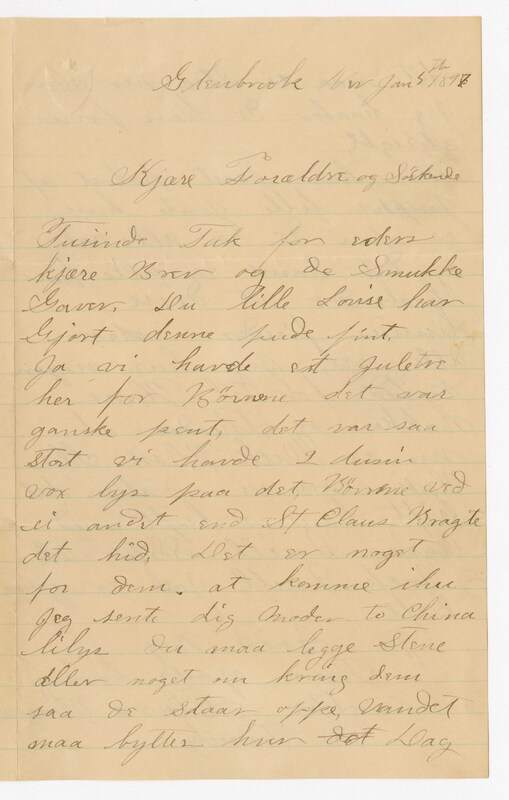 Glenbrook den Jan 5th 1897
Kjære Forældre og Söskende
Tusinde Tak for eders
kjære Brev og de Smukke
Gaver. Du lille Lovise har
Gjort denne pude fint.
Ja vi havde et Juletre
her for Börnene det var
ganske pent, det var saa
stort vi havde 2 dusin
vox lys paa det, Börnene ved
ei andet end St Claus Bragte
det hid, Det er noget
for dem. at komme ihu
Jeg sente dig Moder to China
lilys du maa legge Stene
eller noget om kring dem
saa de staar oppe, vandet
maa byttes hver det Dag